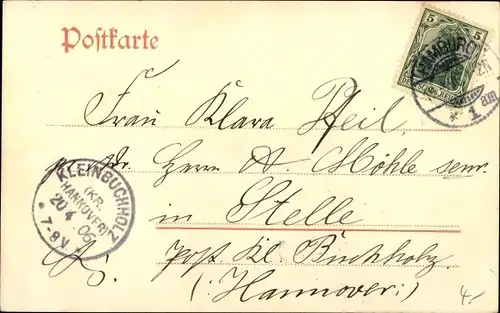 Postkarte
5
HAMBURG
* 1
am
Frau Klara Pfeil,
pr. Adr. Herrn A. Möhle senr.
in Stelle
Post Kl. Buchholz
(: Hannover :)
KLEINBUCHHOLZ
(KR.
HANNOVER)
20 4 06
* 7-8 V.
4.-